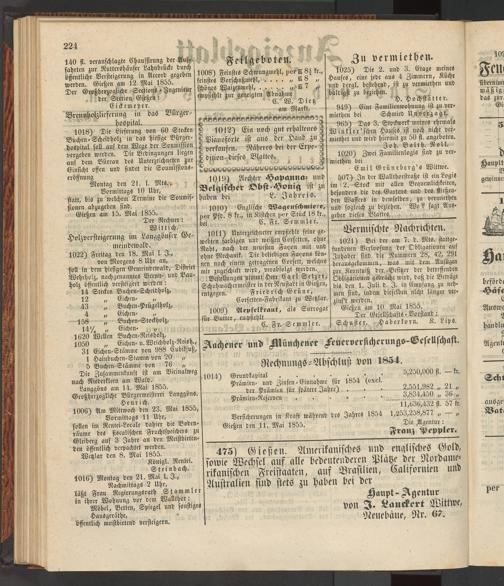 224
140 fl. veranschlagte Chaussirung der Auf-
fahrten zur Ruttershäuser Lahnbrücke durch
öffentliche Versteigerung in Accord gegeben
werden. Gießen am 12. Mai 1855.
Der Großherzogliche Sections-Ingenieur
der Section Gießen
Eickemeyer.
Brennholzlieferung in das Bürger-
hospital.
1018) Die Lieferung von 60 Stecken
Buchen-Scheidholz in das hiesige Bürger-
hospital soll auf dem Wege der Soumission
vergeben werden. Die Bedingungen liegen
auf dem Büreau des Unterzeichneten zur
Einsicht offen und findet die Soumissions-
eröffnung
Montag den 21. l. Mts.,
Vormittags 10 Uhr,
statt, bis zu welchem Termine die Soumis-
sionen abzugeben sind.
Gießen am 15. Mai 1855.
Der Rechner:
Wittich.
Holzversteigerung im Langgönser Ge-
meindewald.
1022) Freitag den 18. Mai 1855,
von Morgens 8 Uhr an,
soll in dem hiesigen Gemeindewald, District
Wehrholz, nachgenanntes Werk- und Brenn-
holz öffentlich versteigert werden:
14 Stecken Buchen-Scheidholz,
12 „ Eichen-
43 „ Buchen-Prügelholz,
4 „ Eichen-
158 „ Buchen-Stockholz,
14½ „ Eichen-
1620 Wellen Buchen-Reisholz,
1050 „ Eichen- u. Weichholz-Reisholz,
31 Eichen-Stämme von 988 Cubikfuß,
1 Hainbuchen-Stamm von 20 „
5 Buchen-Stämme von 76 „
Die Zusammenkunft ist am Vicinalweg
nach Niederkleen am Wald.
Langgöns am 11. Mai 1855.
Großherzoglicher Bürgermeister Langgöns.
Henrich.
1006) Am Mittwoch den 23. Mai 1855,
Vormittags 11 Uhr,
sollen im Rentei-Locale dahier die Boden-
räume des fiscalischen Fruchtspeichers zu
Gleiberg auf 3 Jahre an den Meistbieten-
den öffentlich verpachtet werden.
Wetzlar den 8. Mai 1855.
Königl. Rentei.
Steinbach.
1016) Montag den 21. Mai l. J.,
Nachmittags 2 Uhr,
läßt Frau Regierungsrath Stammler
in ihrer Wohnung vor dem Wallthor:
Möbel, Betten, Spiegel und sonstiges
Hausgeräthe,
öffentlich meistbietend versteigern.
Feilgeboten.
1008) Feinstes Schwungmehl, per ℔ 8½ kr.,
feinstes Vorschußmehl, „ ℔ 8 „
schönes Waizenmehl, „ ℔ 7 „
empfiehlt zur geneigten Abnahme
C. W. Dietz
am Markt.
1012) Ein noch gut erhaltenes
Pianoforte ist aus der Hand zu
verkaufen. Näheres bei der Expe-
dition dieses Blattes.
Aechter Havanna-
Belgischer Obst-Honig ist zu
haben bei L. Jaheris.
1010) Englische Wagenschmiere,
per Pfd. 8 kr., in Kistchen per Stück 18 kr.
bei C. Fr. Semmler.
1019) Unterzeichneter empfiehlt seine ge-
nähten sowie
ohne
Naht, nach der neuesten Façon mit und
ohne Mechanik. Die beliebigen Façons kön-
nen nach einem getragenen Corset, welches
mir zugeschickt wird, verabfolgt werden.
Bestellungen nimmt Herr Carl Setzer,
Schuhmachermeister in der Neustadt in Gießen,
entgegen. Friedrich Grüner,
Corsetten-Fabrikant zu Wetzlar.
1009) Aepfelkraut, als Surrogat
für Butter, empfiehlt
C. Fr. Semmler.
Zu vermiethen.
1025) Die 2. und 3. Etage meines
Hauses, eine jede aus 4 Zimmern, Küche
und dergl. bestehend, ist zu vermiethen und
bald zu beziehen.
H. Hochstätter.
949) Eine Familienwohnung ist zu ver-
miethen bei Schmied Unverzagt.
965) Das 3. Stockwerk meines vormals
Winkler'schen Hauses ist noch nicht ver-
miethet und wird hiermit zu 50 fl. angeboten.
Joh. Balth. Noll.
1020) Zwei Familienlogis sind zu ver-
miethen bei
Emil Grüneberg's Wittwe.
Vermischte Nachrichten.
1021) Bei der am 7. d. Mts. stattge-
habten Verloosung der Obligationen auf
Inhaber sind die Nummern 28, 42, 291
herausgekommen, was mit dem Anfügen
zur Kenntniß der Besitzer der betreffenden
Obligationen gebracht wird, daß die Beträge
bis den 1. Juli d. J. in Empfang zu neh-
men, indem dieselben nicht länger ver-
zinset werden.
Gießen am 10. Mai 1855.
Der Gesellschafts-Vorstand:
Schuster. Haberkorn. K. Lips.
Aachener und Münchener Feuerversicherungs-Gesellschaft.
Rechnungs-Abschluß von 1854.
1014) Grundkapital 5,250,000 fl. — kr.
Prämien- und Zinsen-Einnahme für 1854 (excl.
der Prämien für spätere Jahre) 2,551,982 „ 21 „
Prämien-Reserven 3,834,450 „ 36 „
11,636,432 fl. 57 kr
Versicherungen in Kraft während des Jahres 1854 1,253,258,877 „ — „
Gießen den 11. Mai 1855. Die Agentur:
Franz Peppler.
475) Gießen. Amerikanisches und englisches Gold,
sowie Wechsel auf alle bedeutenderen Plätze der Nordame-
rikanischen Freistaaten, auf Brasilien, Californien und
Australien sind stets zu haben bei der
Haupt-Agentur
von J. Lanckert Wittwe,
Neuebäue, Nr. 67.